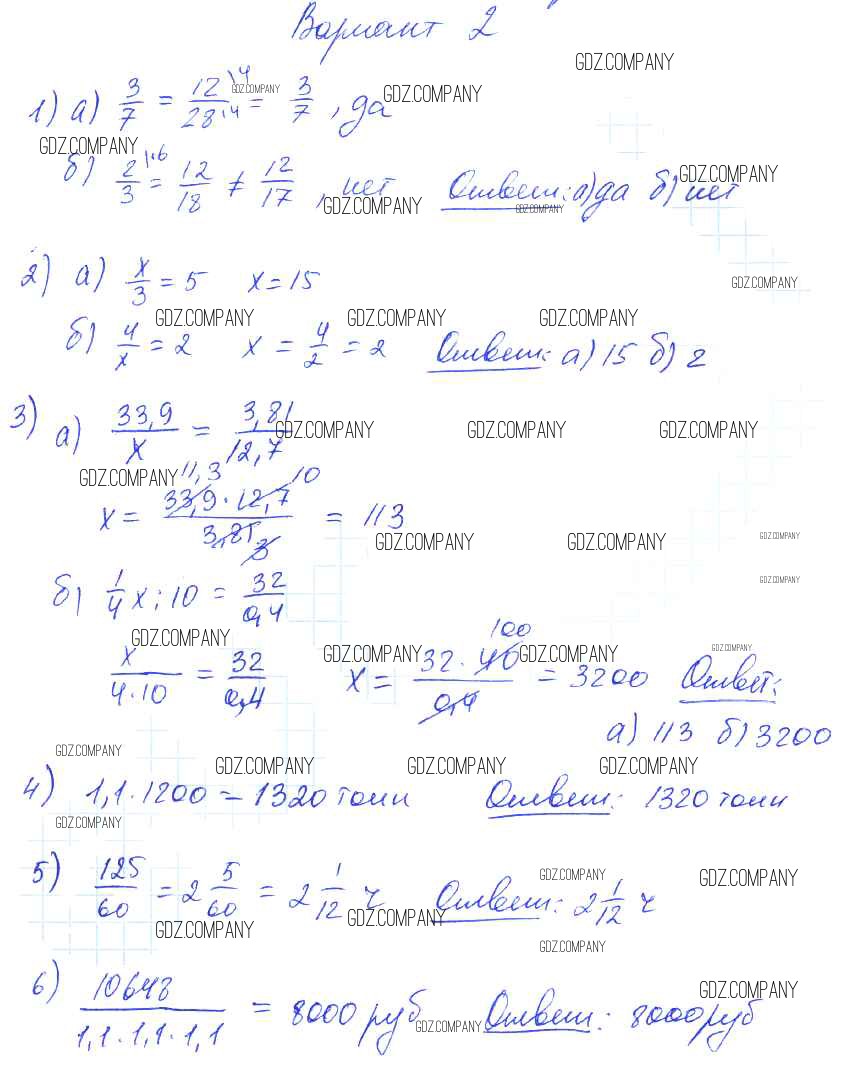 Вариант 2
GDZ.COMPANY
1) а) 3/7 = 12\4/28:4 = 3/7, да
GDZ.COMPANY GDZ.COMPANY
GDZ.COMPANY
б) 2/3 |·6 = 12/18 ≠ 12/17, нет Ответ: а) да б) нет
GDZ.COMPANY GDZ.COMPANY GDZ.COMPANY
2) а) x/3 = 5 x = 15
GDZ.COMPANY
GDZ.COMPANY GDZ.COMPANY GDZ.COMPANY
б) 4/x = 2 x = 4/2 = 2 Ответ: а) 15 б) 2
3) а) 33,9/x = 3,81/12,7
GDZ.COMPANY GDZ.COMPANY GDZ.COMPANY
GDZ.COMPANY 11,3 10
x = 33,9·12,7/3,81 3 = 113
GDZ.COMPANY GDZ.COMPANY GDZ.COMPANY
б) 1/4 x : 10 = 32/0,4
GDZ.COMPANY
GDZ.COMPANY 100
x/4·10 = 32/0,4 x = 32·40/0,4 = 3200 Ответ:
GDZ.COMPANY GDZ.COMPANY GDZ.COMPANY
а) 113 б) 3200
GDZ.COMPANY GDZ.COMPANY GDZ.COMPANY GDZ.COMPANY
4) 1,1·1200 = 1320 тонн Ответ: 1320 тонн
GDZ.COMPANY
5) 125/60 = 2 5/60 = 2 1/12 ч Ответ: 2 1/12 ч
GDZ.COMPANY GDZ.COMPANY
GDZ.COMPANY GDZ.COMPANY
GDZ.COMPANY
6) 10648/1,1·1,1·1,1 = 8000 руб Ответ: 8000 руб
GDZ.COMPANY GDZ.COMPANY